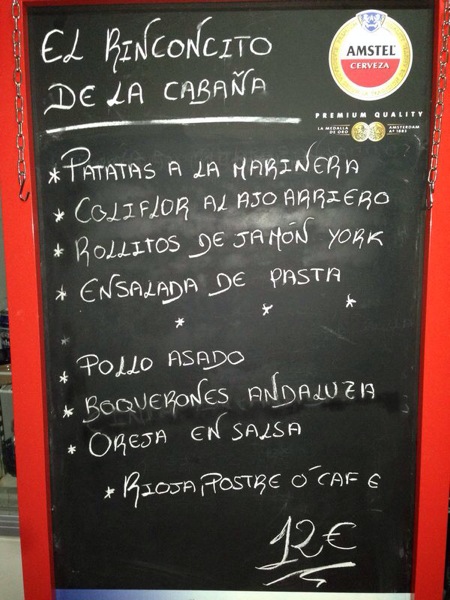 EL RINCONCITO
DE LA CABAÑA
AMSTEL
CERVEZA
PREMIUM QUALITY
LA MEDALLA DE ORO
AMSTERDAM Aº 1883
* PATATAS A LA MARINERA
* COLIFLOR AL AJO ARRIERO
* ROLLITOS DE JAMÓN YORK
* ENSALADA DE PASTA
* * *
* POLLO ASADO
* BOQUERONES ANDALUZIA
* OREJA EN SALSA
* RIOJA, POSTRE O´ CAFE
12€